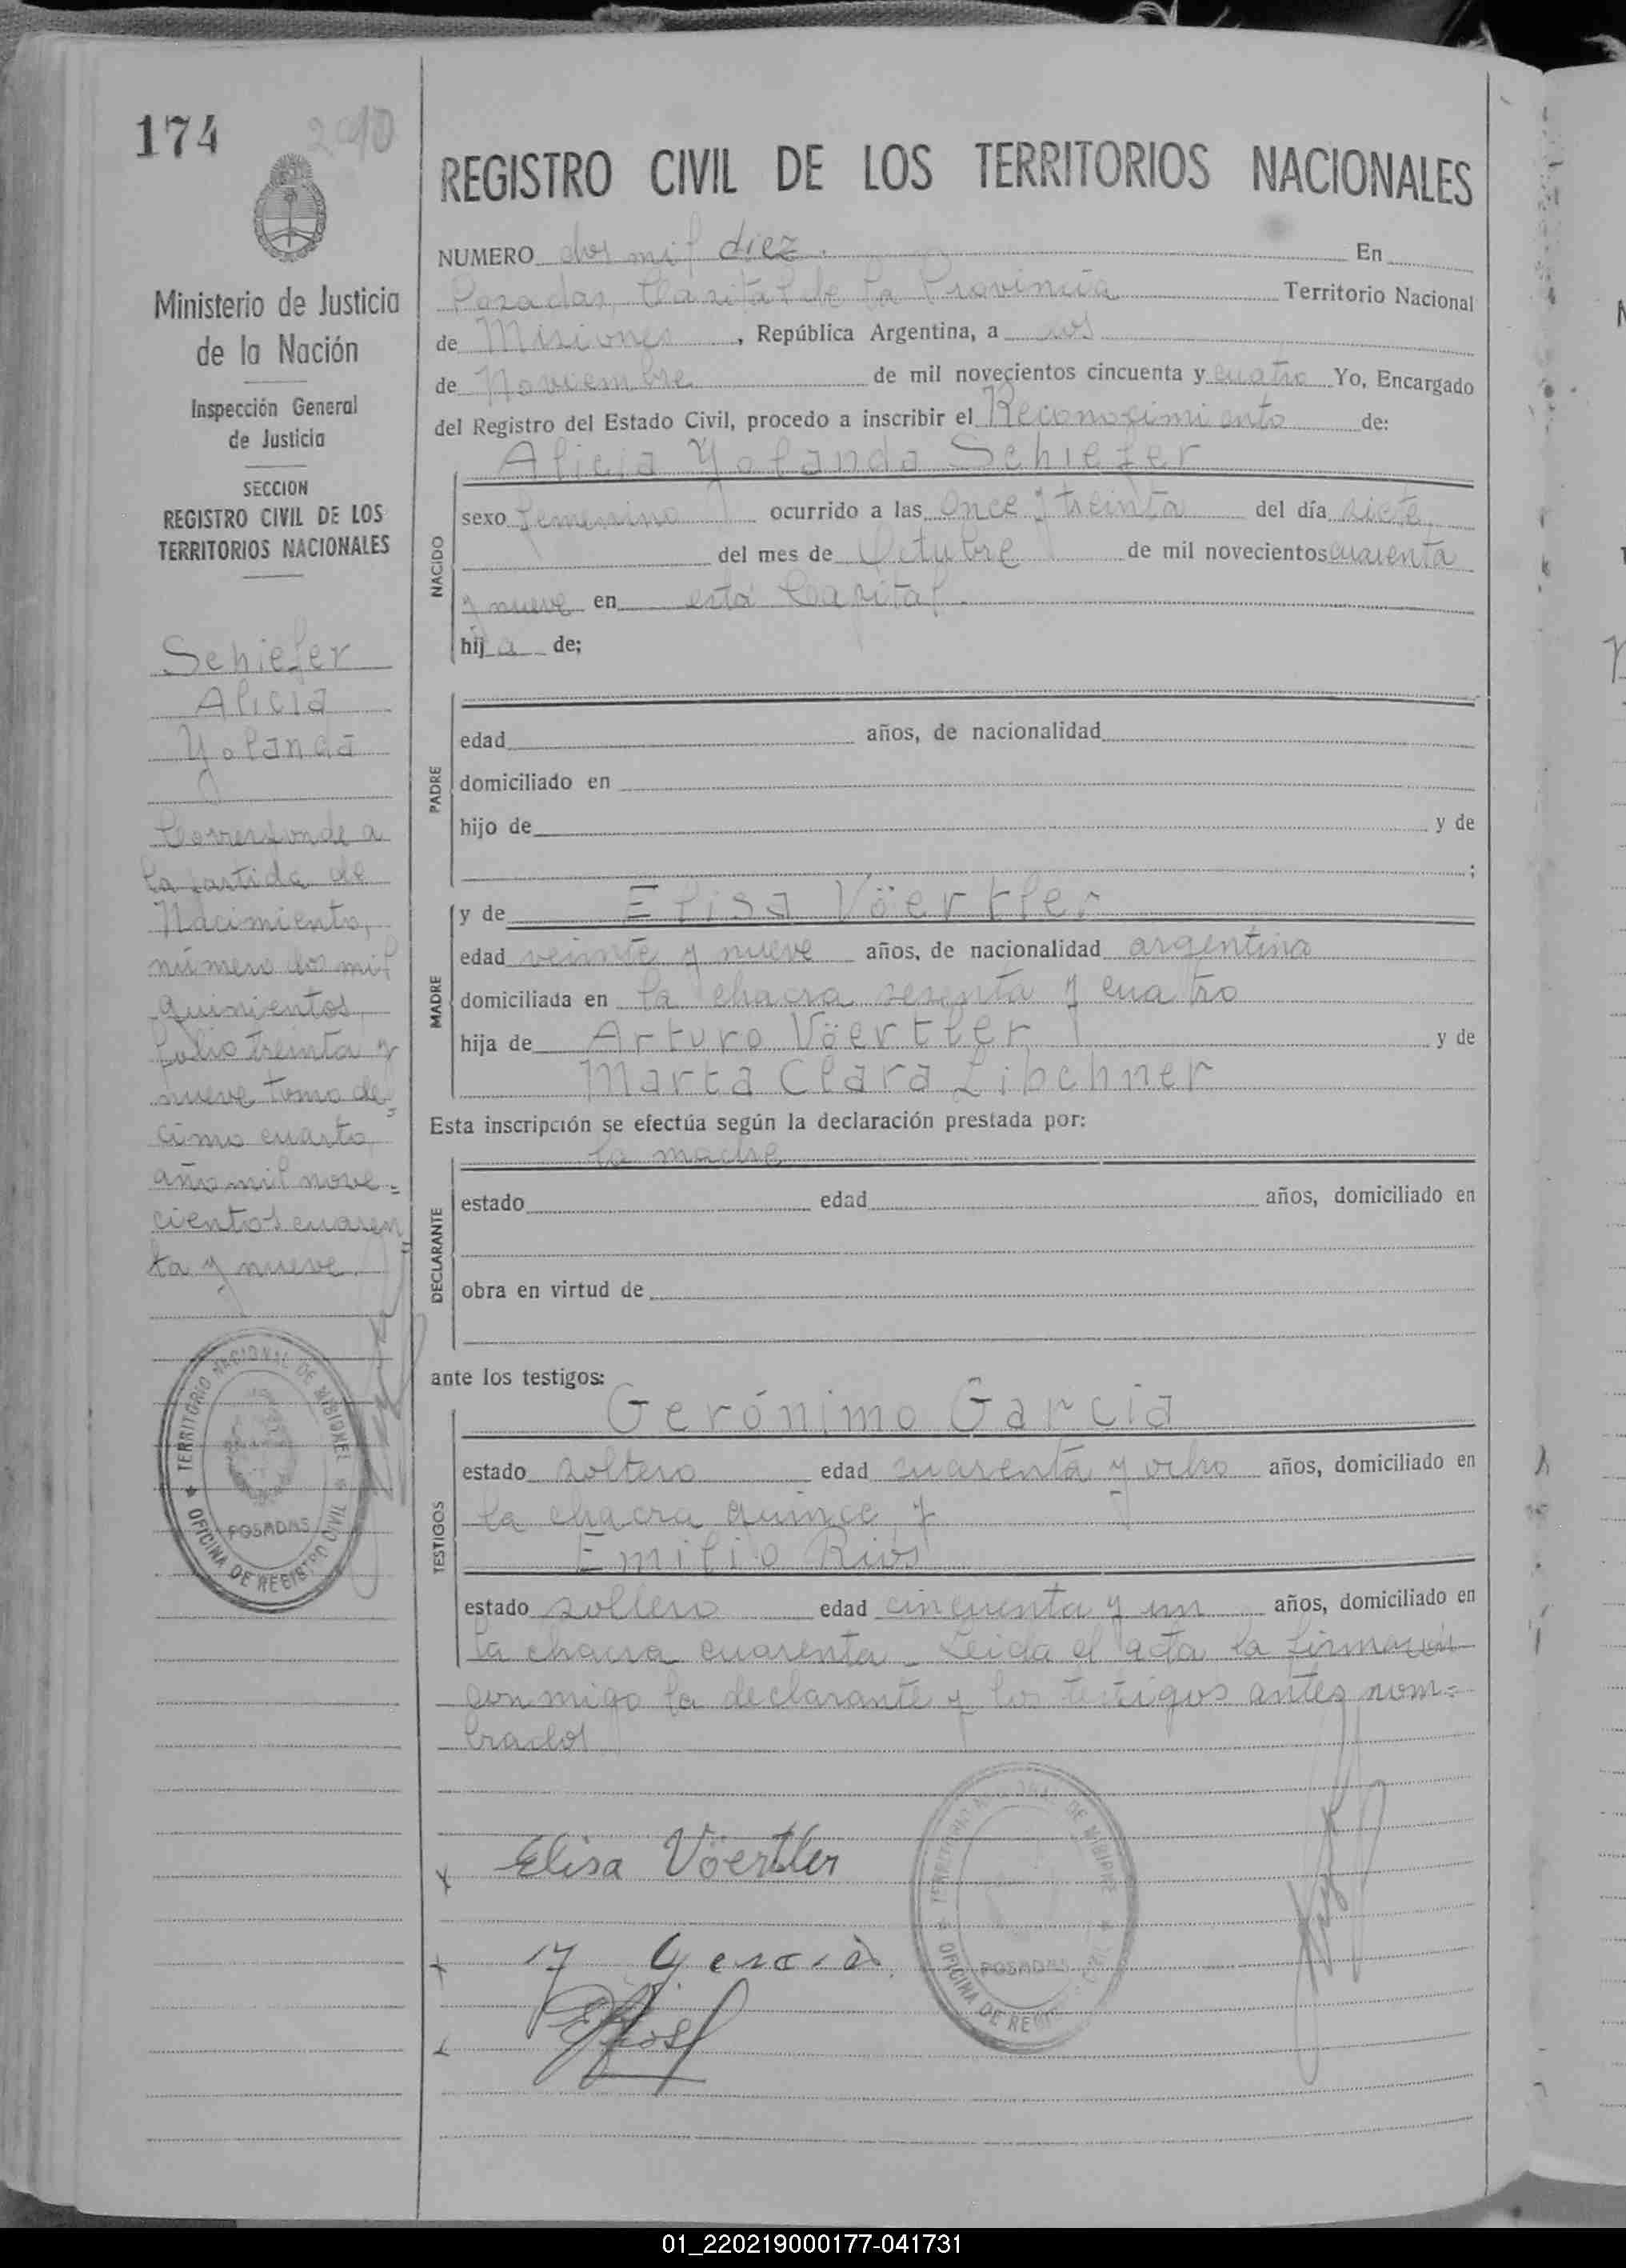 174
2010
REGISTRO CIVIL DE LOS TERRITORIOS NACIONALES
Ministerio de Justicia
de la Nación
Inspección General
de Justicia
SECCION
REGISTRO CIVIL DE LOS
TERRITORIOS NACIONALES
Schiefer
Alicia
Yolanda
Corresponde a
la partida de
Nacimiento,
número dos mil
quinientos,
folio treinta y
nueve tomo de=
cimo cuarto,
año mil nove=
cientos cuaren=
ta y nueve.
TERRITORIO NACIONAL DE MISIONES
OFICINA DE REGISTRO CIVIL
POSADAS
NUMERO dos mil diez. En
Posadas, Capital de la Provincia Territorio Nacional
de Misiones, República Argentina, a dos
de Noviembre de mil novecientos cincuenta y cuatro Yo, Encargado
del Registro del Estado Civil, procedo a inscribir el Reconocimiento de:
Alicia Yolanda Schiefer
NACIDO
sexo femenino ocurrido a las once y treinta del día siete
del mes de Octubre de mil novecientos cuarenta
y nueve en esta Capital.
hija de;
PADRE
edad años, de nacionalidad
domiciliado en
hijo de y de
;
MADRE
y de Elisa Vöertler
edad veinte y nueve años, de nacionalidad argentina
domiciliada en la chacra sesenta y cuatro
hija de Arturo Vöertler y de
Marta Clara Libchner
Esta inscripción se efectúa según la declaración prestada por:
la madre
DECLARANTE
estado edad años, domiciliado en
obra en virtud de
ante los testigos:
TESTIGOS
Gerónimo Garcia
estado soltero edad cuarenta y ocho años, domiciliado en
la chacra quince y
Emilio Rios
estado soltero edad cincuenta y un años, domiciliado en
la chacra cuarenta. Leida el acta la firmaron
conmigo la declarante y los testigos antes nom=
brados
Elisa Vöertler
Garcia
TERRITORIO NACIONAL DE MISIONES
OFICINA DE REGISTRO CIVIL
POSADAS
01_220219000177-041731